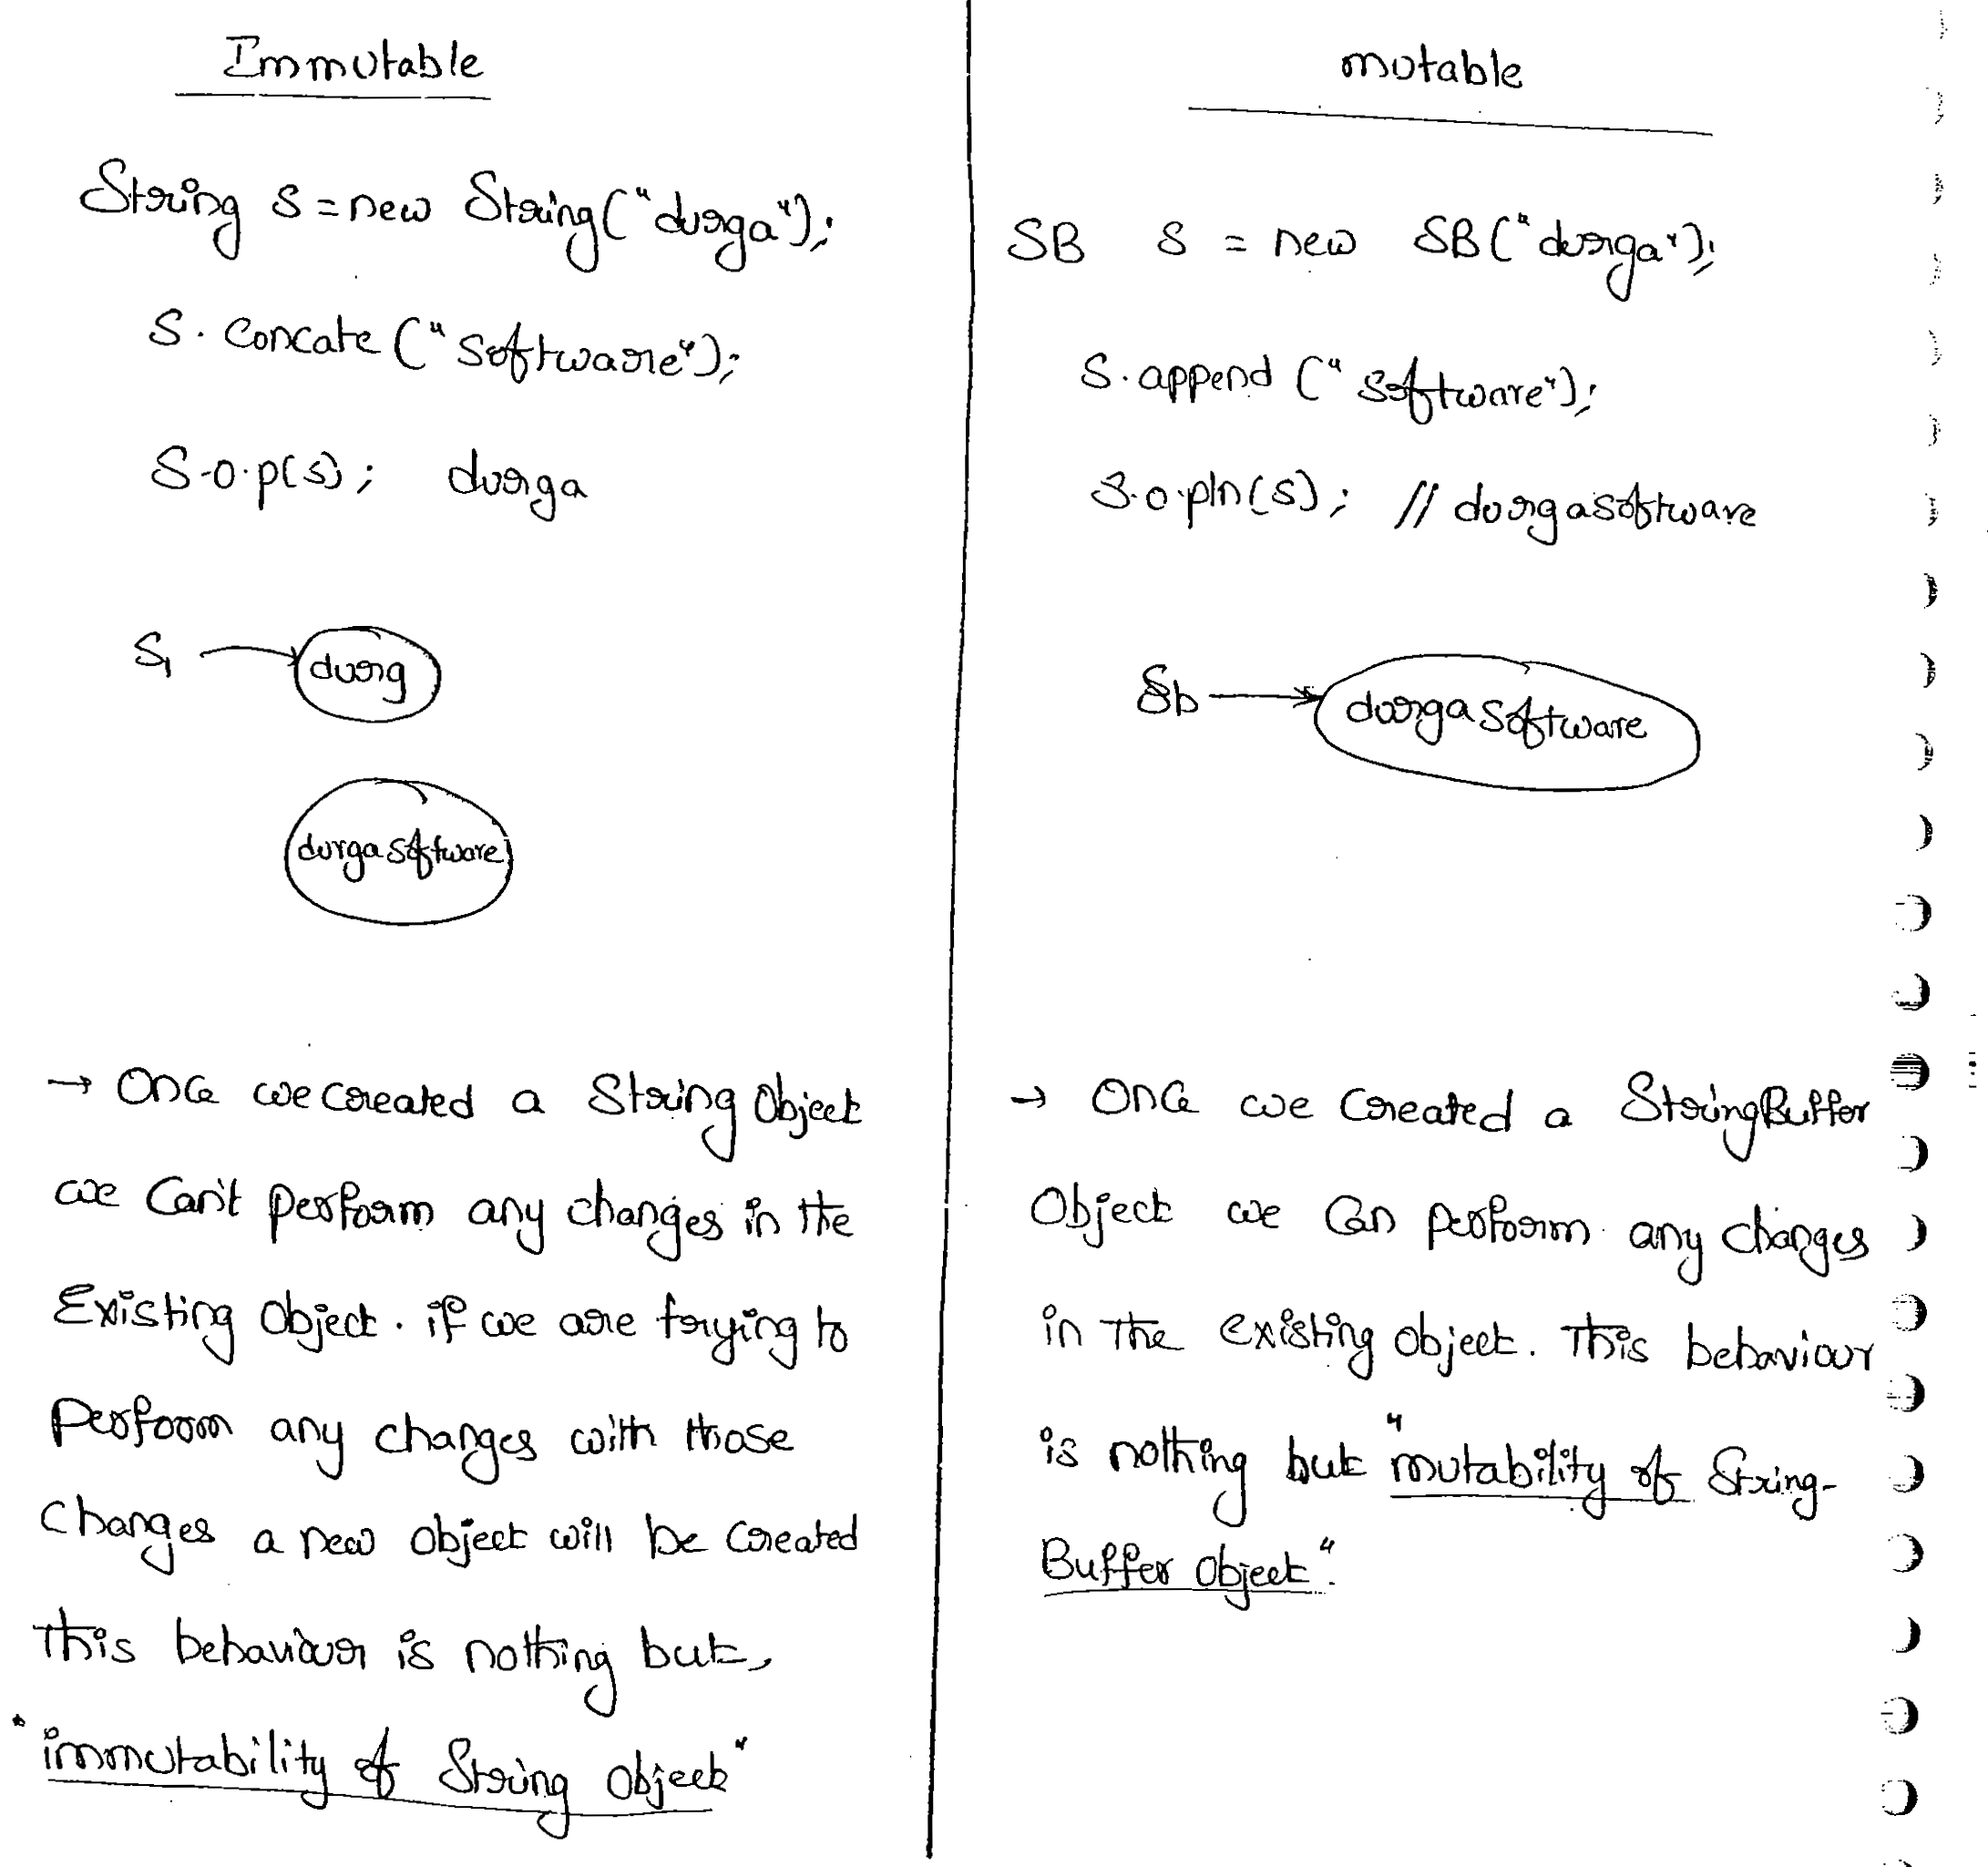 Immutable
String s = new String("durga");
S. Concate ("Software");
S.o.p(s); durga
S1
durg
durga software
→ Once we created a String Object
we Can't perform any changes in the
Existing Object. if we are trying to
perform any changes with those
changes a new object will be created
This behaviour is nothing but,
"immutability of String object"
mutable
SB s = new SB("durga");
S.append ("Software");
S.o.pln(s); // durgasoftware
Sb
durgasoftware
→ Once we created a StringBuffer
Object we Can perform any changes
in the existing object. This behaviour
is nothing but "mutability of String-
Buffer object".